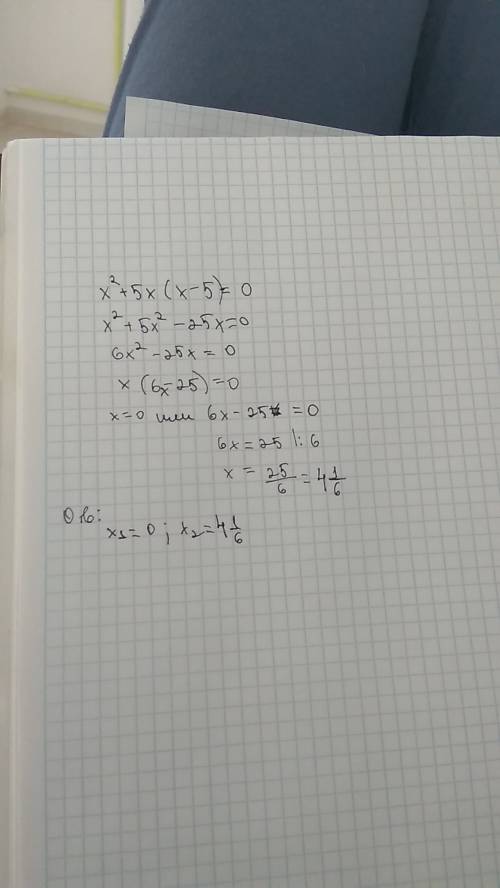 x² + 5x (x - 5) = 0
x² + 5x² - 25x = 0
6x² - 25x = 0
x (6x - 25) = 0
x = 0 или 6x - 25 = 0
6x = 25 |: 6
x = 25/6 = 4 1/6
Отв:
x₁ = 0 ; x₂ = 4 1/6